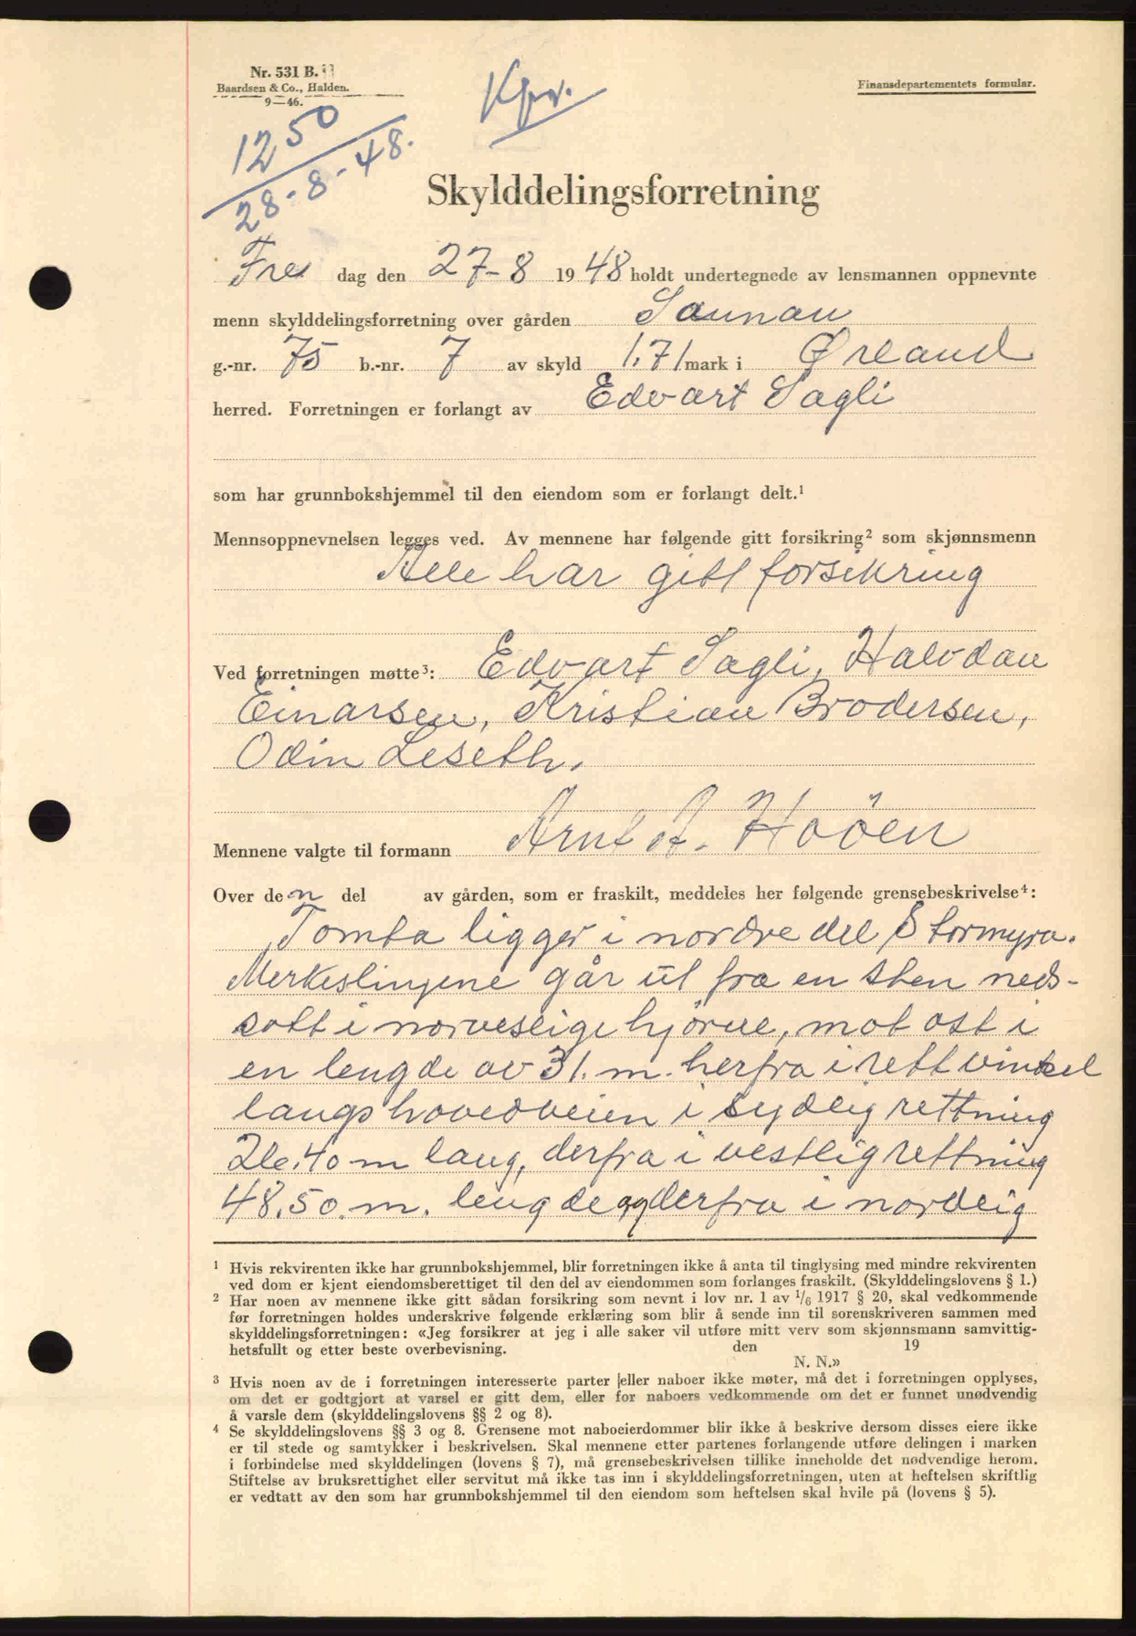 Nr. 531 B.
Baardsen & Co., Halden.
9—46.
Finansdepartementets formular.
Kpr.
1250
28-8-48.
Skylddelingsforretning
Fre dag den 27-8 1948 holdt undertegnede av lensmannen oppnevnte
menn skylddelingsforretning over gården Saunau
g.-nr. 75 b.-nr. 7 av skyld 1,71 mark i Ørland
herred. Forretningen er forlangt av Edvart Sagli
som har grunnbokshjemmel til den eiendom som er forlangt delt.¹
Mennsoppnevnelsen legges ved. Av mennene har følgende gitt forsikring² som skjønnsmenn
Alle har gitt forsikring
Ved forretningen møtte³: Edvart Sagli, Halvdan
Einarsen, Kristian Brodersen,
Odin Leseth.
Mennene valgte til formann Arnt A. Hoöen
Over den del av gården, som er fraskilt, meddeles her følgende grensebeskrivelse⁴:
Tomta ligger i nordre del Stormyra.
Merkeslinjene går ut fra en sten neds-
satt i norveslige hjörne, mot ost i
en lengde av 31. m. herfra i rett vinkel
langs hovedveien i sydlig rettning
26.40 m lang, derfra i vestlig rettning
48.50. m. lengde og derfra i nordlig
¹ Hvis rekvirenten ikke har grunnbokshjemmel, blir forretningen ikke å anta til tinglysing med mindre rekvirenten
ved dom er kjent eiendomsberettiget til den del av eiendommen som forlanges fraskilt. (Skylddelingslovens § 1.)
² Har noen av mennene ikke gitt sådan forsikring som nevnt i lov nr. 1 av 1/6 1917 § 20, skal vedkommende
før forretningen holdes underskrive følgende erklæring som blir å sende inn til sorenskriveren sammen med
skylddelingsforretningen: «Jeg forsikrer at jeg i alle saker vil utføre mitt verv som skjønnsmann samvittig-
hetsfullt og etter beste overbevisning. den 19
N. N.»
³ Hvis noen av de i forretningen interesserte parter eller naboer ikke møter, må det i forretningen opplyses,
om det er godtgjort at varsel er gitt dem, eller for naboers vedkommende om det er funnet unødvendig
å varsle dem (skylddelingslovens §§ 2 og 8).
⁴ Se skylddelingslovens §§ 3 og 8. Grensene mot naboeierdommer blir ikke å beskrive dersom disses eiere ikke
er til stede og samtykker i beskrivelsen. Skal mennene etter partenes forlangende utføre delingen i marken
i forbindelse med skylddelingen (lovens § 7), må grensebeskrivelsen tillike inneholde det nødvendige herom.
Stiftelse av bruksrettighet eller servitut må ikke tas inn i skylddelingsforretningen, uten at heftelsen skriftlig
er vedtatt av den som har grunnbokshjemmel til den eiendom som heftelsen skal hvile på (lovens § 5).